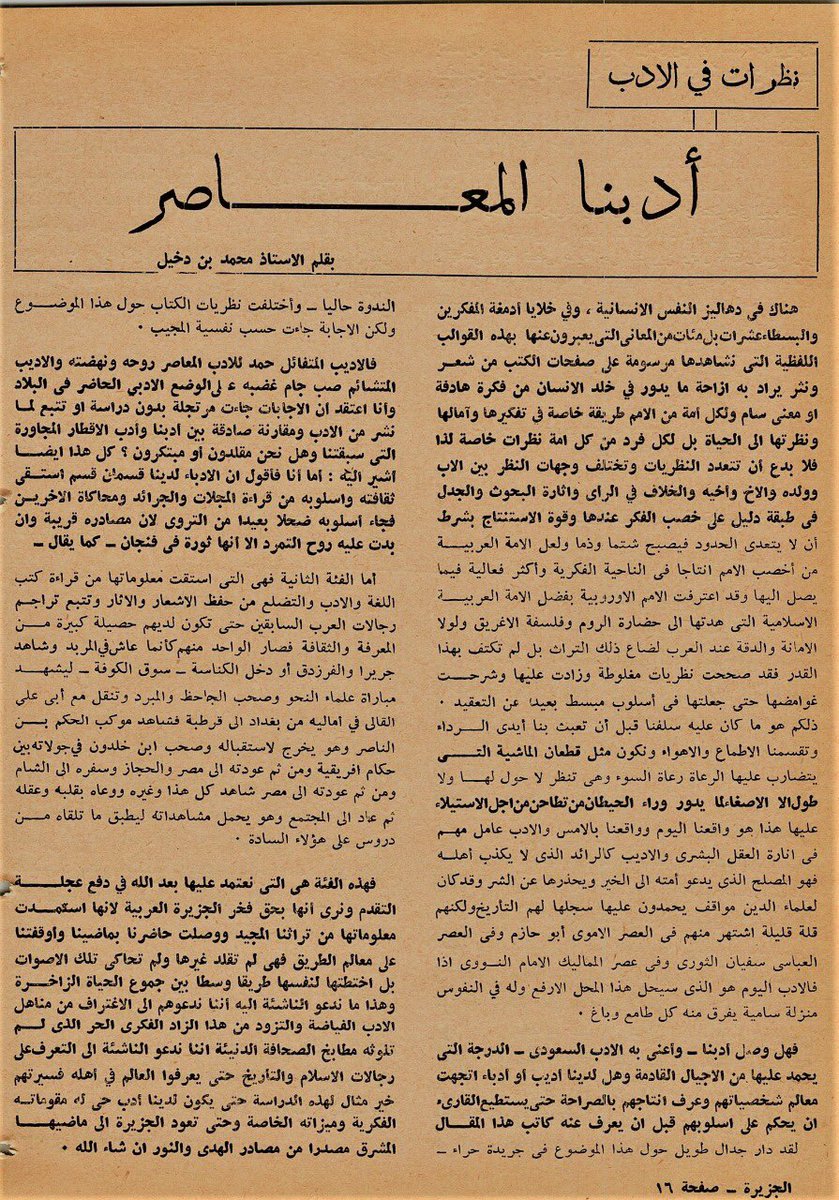 نظرات في الادب
أدبنا المعـــاصر
بقلم الاستاذ محمد بن دخيل
هناك فى دهاليز النفس الانسانية ، وفي خلايا أدمغة المفكرين
والبسطاء عشرات بل مئات من المعانى التى يعبرون عنها بهذه القوالب
اللفظية التى نشاهدها مرسومة على صفحات الكتب من شعر
ونثر يراد به ازاحة ما يدور في خلد الانسان من فكرة هادفة
او معنى سام ولكل أمة من الامم طريقة خاصة في تفكيرها وآمالها
ونظرتها الى الحياة بل لكل فرد من كل امة نظرات خاصة لذا
فلا بدع أن تتعدد النظريات وتختلف وجهات النظر بين الاب
وولده والاخ وأخيه والخلاف في الرأى واثارة البحوث والجدل
فى طبقة دليل على خصب الفكر عندها وقوة الاستنتاج بشرط
أن لا يتعدى الحدود فيصبح شتما وذما ولعل الامة العربيـــة
من أخصب الامم انتاجا فى الناحية الفكرية وأكثر فعالية فيما
يصل اليها وقد اعترفت الامم الاوروبية بفضل الامة العربيـــة
الاسلامية التى هدتها الى حضارة الروم وفلسفة الاغريق ولولا
الامانة والدقة عند العرب لضاع ذلك التراث بل لم تكتف بهذا
القدر فقد صححت نظريات مغلوطة وزادت عليها وشرحــت
غوامضها حتى جعلتها فى أسلوب مبسط بعيدا عن التعقيد ٠
ذلكم هو ما كان عليه سلفنا قبل أن تعبث بنا أيدى الـــرداء
وتقسمنا الاطماع والاهواء ونكون مثل قطعان الماشية التـــى
يتضارب عليها الرعاة رعاة السوء وهى تنظر لا حول لهـــا ولا
طول الا الاصغاء لما يدور وراء الحيطان من تطاحن من اجل الاستيلاء
عليها هذا هو واقعنا اليوم وواقعنا بالامس والادب عامل مهـم
فى انارة العقل البشرى والاديب كالرائد الذى لا يكذب أهلـه
فهو المصلح الذى يدعو أمته الى الخير ويحذرها عن الشر وقد كان
لعلماء الدين مواقف يحمدون عليها سجلها لهم التأريخ ولكنهم
قلة قليلة اشتهر منهم فى العصر الاموى أبو حازم وفى العصر
العباسى سفيان الثورى وفى عصر المماليك الامام النــووى اذا
فالادب اليوم هو الذى سيحل هذا المحل الارفع وله في النفوس
منزلة سامية يفرق منه كل طامع وباغ ٠
فهل وصل أدبنا ــ وأعنى به الادب السعودى ــ الدرجة التى
يحمد عليها من الاجيال القادمة وهل لدينا أديب أو أدباء اتجهت
معالم شخصياتهم وعرف انتاجهم بالصراحة حتى يستطيع القارىء
ان يحكم على اسلوبهم قبل ان يعرف عنه كاتب هذا المقـــال
لقد دار جدال طويل حول هذا الموضوع فى جريدة حراء ــ
الندوة حاليا ــ وأختلفت نظريات الكتاب حول هذا الموضـــوع
ولكن الاجابة جاءت حسب نفسية المجيب ٠
فالاديب المتفائل حمد للادب المعاصر روحه ونهضته والاديب
المتشائم صب جام غضبه على الوضع الادبي الحاضر فى البلاد
وأنا اعتقد ان الاجابات جاءت مرتجلة بدون دراسة او تتبع لمـا
نشر من الادب ومقارنة صادقة بين أدبنا وأدب الاقطار المجاورة
التى سبقتنا وهل نحن مقلدون أو مبتكرون ؟ كل هذا ايضــا
أشير اليه : أما أنا فأقول ان الادباء لدينا قسمان قسم استـقى
ثقافته واسلوبه من قراءة المجلات والجرائد ومحاكاة الاخريـن
فجاء أسلوبه ضحلا بعيدا من التروى لان مصادره قريبة وان
بدت عليه روح التمرد الا أنها ثورة فى فنجان ــ كما يقال ــ
أما الفئة الثانية فهى التى استقت معلوماتها من قراءة كتب
اللغة والادب والتضلع من حفظ الاشعار والاثار وتتبع تراجـم
رجالات العرب السابقين حتى تكون لديهم حصيلة كبيرة مــن
المعرفة والثقافة فصار الواحد منهم كأنما عاش فى المربد وشاهد
جريرا والفرزدق أو دخل الكناسة ــ سوق الكوفة ــ ليشهـد
مباراة علماء النحو وصحب الجاحظ والمبرد وتنقل مع أبى على
القالى في أماليه من بغداد الى قرطبة فشاهد موكب الحكم بــن
الناصر وهو يخرج لاستقباله وصحب ابن خلدون في جولاته بين
حكام افريقية ومن ثم عودته الى مصر والحجاز وسفره الى الشام
ومن ثم عودته الى مصر شاهد كل هذا وغيره ووعاه بقلبه وعقله
ثم عاد الى المجتمع وهو يحمل مشاهداته ليطبق ما تلقاه مــن
دروس على هؤلاء السادة ٠
فهذه الفئة هى التى نعتمد عليها بعد الله في دفع عجلـــة
التقدم ونرى أنها بحق فخر الجزيرة العربية لانها استمـدت
معلوماتها من تراثنا المجيد ووصلت حاضرنا بماضينا وأوقفتنا
على معالم الطريق فهى لم تقلد غيرها ولم تحاكى تلك الاصوات
بل اختطتها لنفسها طريقا وسطا بين جموع الحياة الزاخـرة
وهذا ما ندعو الناشئة اليه أننا ندعوهم الى الاغتراف من مناهل
الادب الفياضة والتزود من هذا الزاد الفكرى الحر الذى لــم
تلوثه مطابخ الصحافة الدنيئة اننا ندعو الناشئة الى التعرف على
رجالات الاسلام والتأريخ حتى يعرفوا العالم في أهله فسيرتهم
خير مثال لهذه الدراسة حتى يكون لدينا أدب حى له مقوماتـه
الفكرية وميزاته الخاصة وحتى تعود الجزيرة الى ماضيهـــا
المشرق مصدرا من مصادر الهدى والنور ان شاء الله ٠
الجزيرة ــ صفحة ١٦